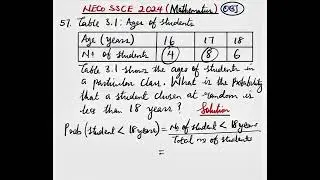 NECO SSCE 2024 (Mathematics) OBJ
57. Table 3.1: Ages of students
Age (years) 16 17 18
No of students 4 8 6
Table 3.1 shows the ages of students in
a particular class. What is the probability
that a student chosen at random is
less than 18 years? Solution
Prob (student < 18 years) = No of student < 18 years
Total no of students
=